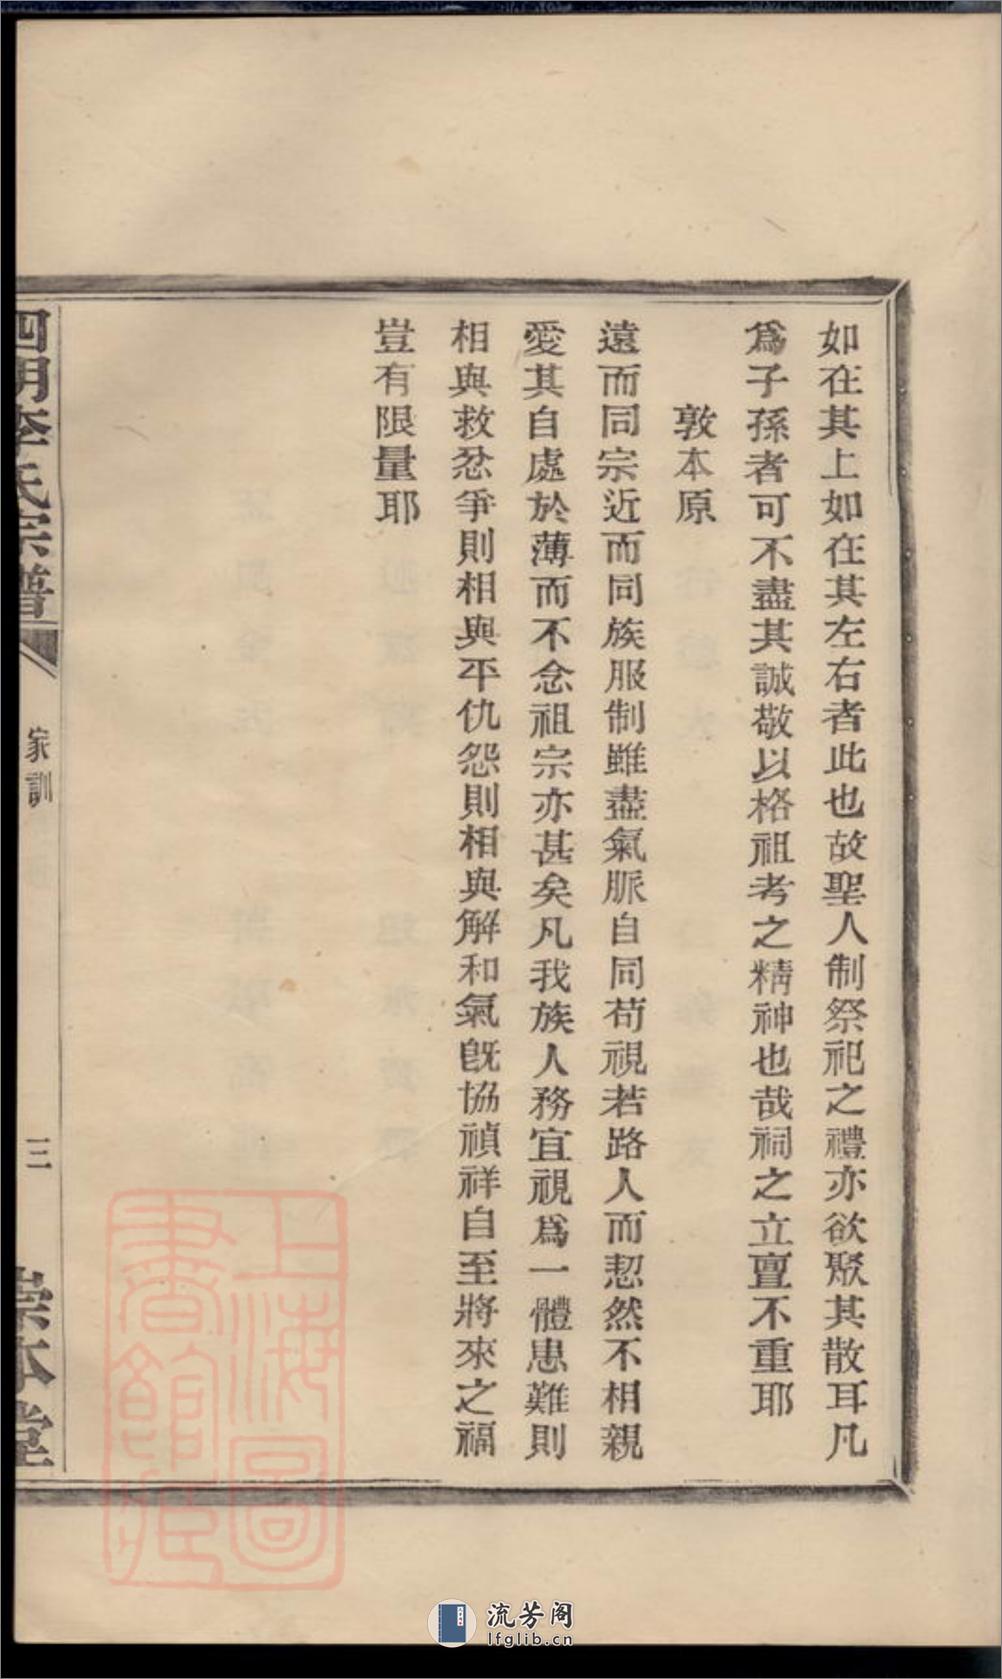 如在其上如在其左右者此也故聖人制祭祀之禮亦欲聚其散耳凡
爲子孫者可不盡其誠敬以格祖考之精神也哉祠之立亶不重耶
敦本原
遠而同宗近而同族服制雖盡氣脈自同苟視若路人而恝然不相親
愛其自處於薄而不念祖宗亦甚矣凡我族人務宜視爲一體患難則
相與救忿爭則相與平仇怨則相與解和氣旣協禎祥自至將來之福
豈有限量耶
四明李氏宗譜
家訓
三
崇本堂
上海圖書館藏
流芳阁
lfglib.cn